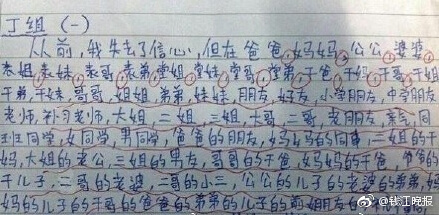 丁组(一)
从前,我失去了信心,但在爸爸,妈妈,公公,婆婆
表姐,表妹,表哥,表弟,堂姐,堂妹,堂哥,堂弟,干爸,干妈,干哥,干姐
干弟,干妹,哥哥,姐姐,弟弟,妹妹,朋友,好友,小学朋友,中学朋友
老师,补习老师,大姐,二姐,三姐,大哥,二哥,老朋友,亲戚,同
班同学,女同学,男同学,爸爸的朋友,妈妈的同事,三姐的干
妈,大姐的老公,三姐的男友,哥哥的干爸,妈妈的干爸,爸爸的
干儿子,二哥的老婆,二哥的小三,公公的儿子的老婆的弟弟,妈
妈的干哥的干爸爸的弟弟的儿子的前姐友
@钱江晚报